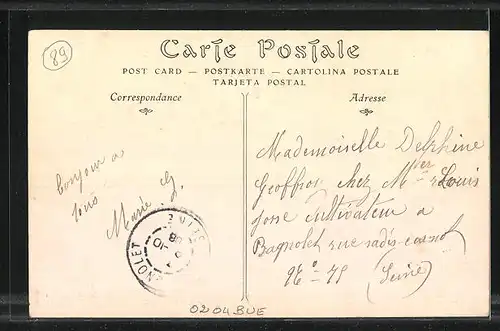 89
Carte Postale
POST CARD — POSTKARTE — CARTOLINA POSTALE
TARJETA POSTAL
Correspondance
Adresse
bonjour a
tous
Marie G.
Mademoiselle Delphine
Geoffroy chez Mr Louis
cultivateur a
Bagnolet rue sadi-carnot
(Seine)
SEINE
0204BUE